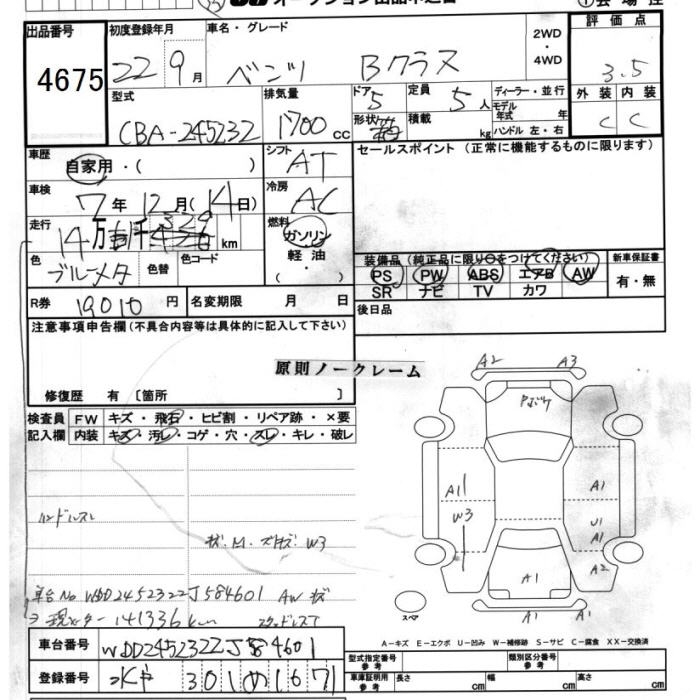 出品番号 初度登録年月 車名・グレード 2WD・4WD 評価点
4675 22 9月 ベンツ Bクラス 3.5
型式 排気量 ドア 定員 ディーラー・並行 外装 内装
CBA-245232 1700cc 5 5人 モデル年式 年 C C
形状 箱 積載 kg ハンドル 左・右
車歴 シフト セールスポイント(正常に機能するものに限ります)
自家用・( ) AT
車検 冷房
7年 12月(14日) AC
走行 燃料
14万 千 km ガソリン
装備品(純正品に限り○をつけてください) 新車保証書
色 色替 色コード 軽油・( )
ブルーメタ
PS PW ABS エアB AW 有・無
SR ナビ TV カワ
R券 19010円 名変期限 月 日 後日品
注意事項申告欄(不具合内容等は具体的に記入して下さい)
原則ノークレーム
修復歴 有〔箇所 〕
A2 A3
検査員 FW キズ・飛石・ヒビ割・リペア跡・×要
記入欄 内装 キズ・汚レ・コゲ・穴・スレ・キレ・破レ
A1 A1
W3 U1
A1
ハンドルスレ
W3
A2
A1
車台No WDD2452322J584601 AW キズ
現メーター 141336km
A1 A1
スペア
A-キズ E-エクボ U-凹み W-補修跡 S-サビ C-腐食 XX-交換済
車台番号 WDD2452322J584601
型式指定番号参考 類別区分番号参考
登録番号 水戸 301 め 1671
車庫証明用参考 長さ cm 幅 cm 高さ cm